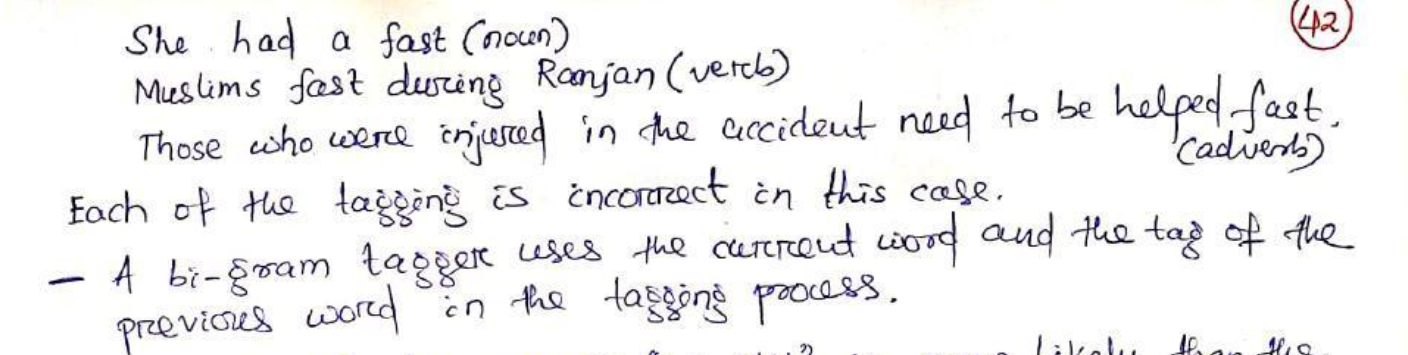 42
She had a fast (noun)
Muslims fast during Ramjan (verb)
Those who were injured in the accident need to be helped fast.
(adverb)
Each of the tagging is incorrect in this case.
– A bi-gram tagger uses the current word and the tag of the
previous word in the tagging process.
likely than the